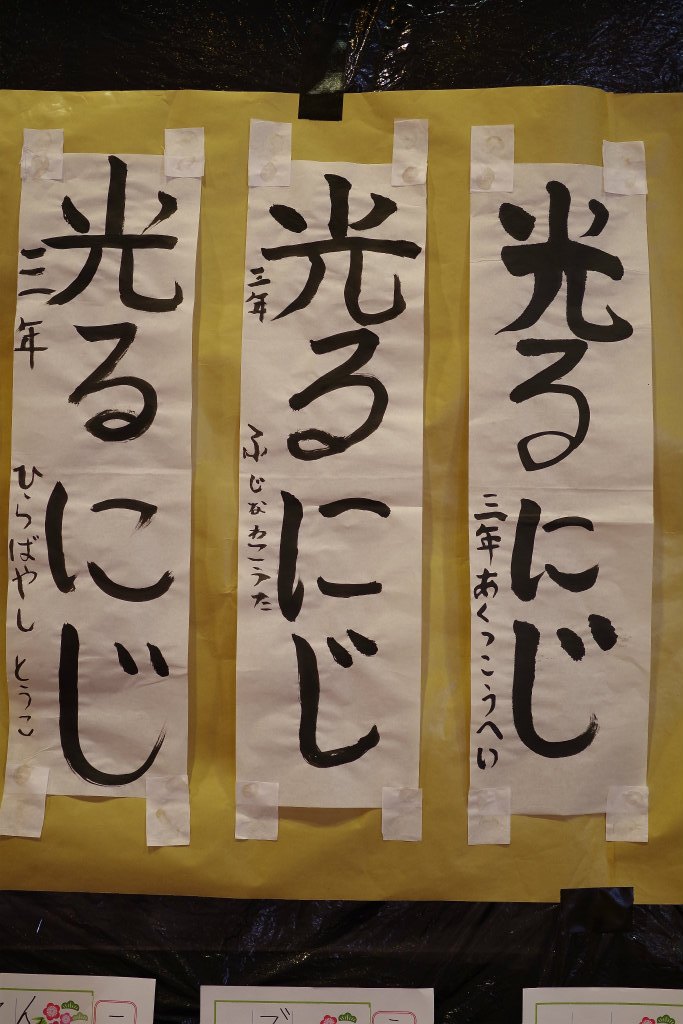 光るにじ
三年あくつこうへい
光るにじ
三年 ふじなわこうた
光るにじ
三年 ひらばやし とうこ